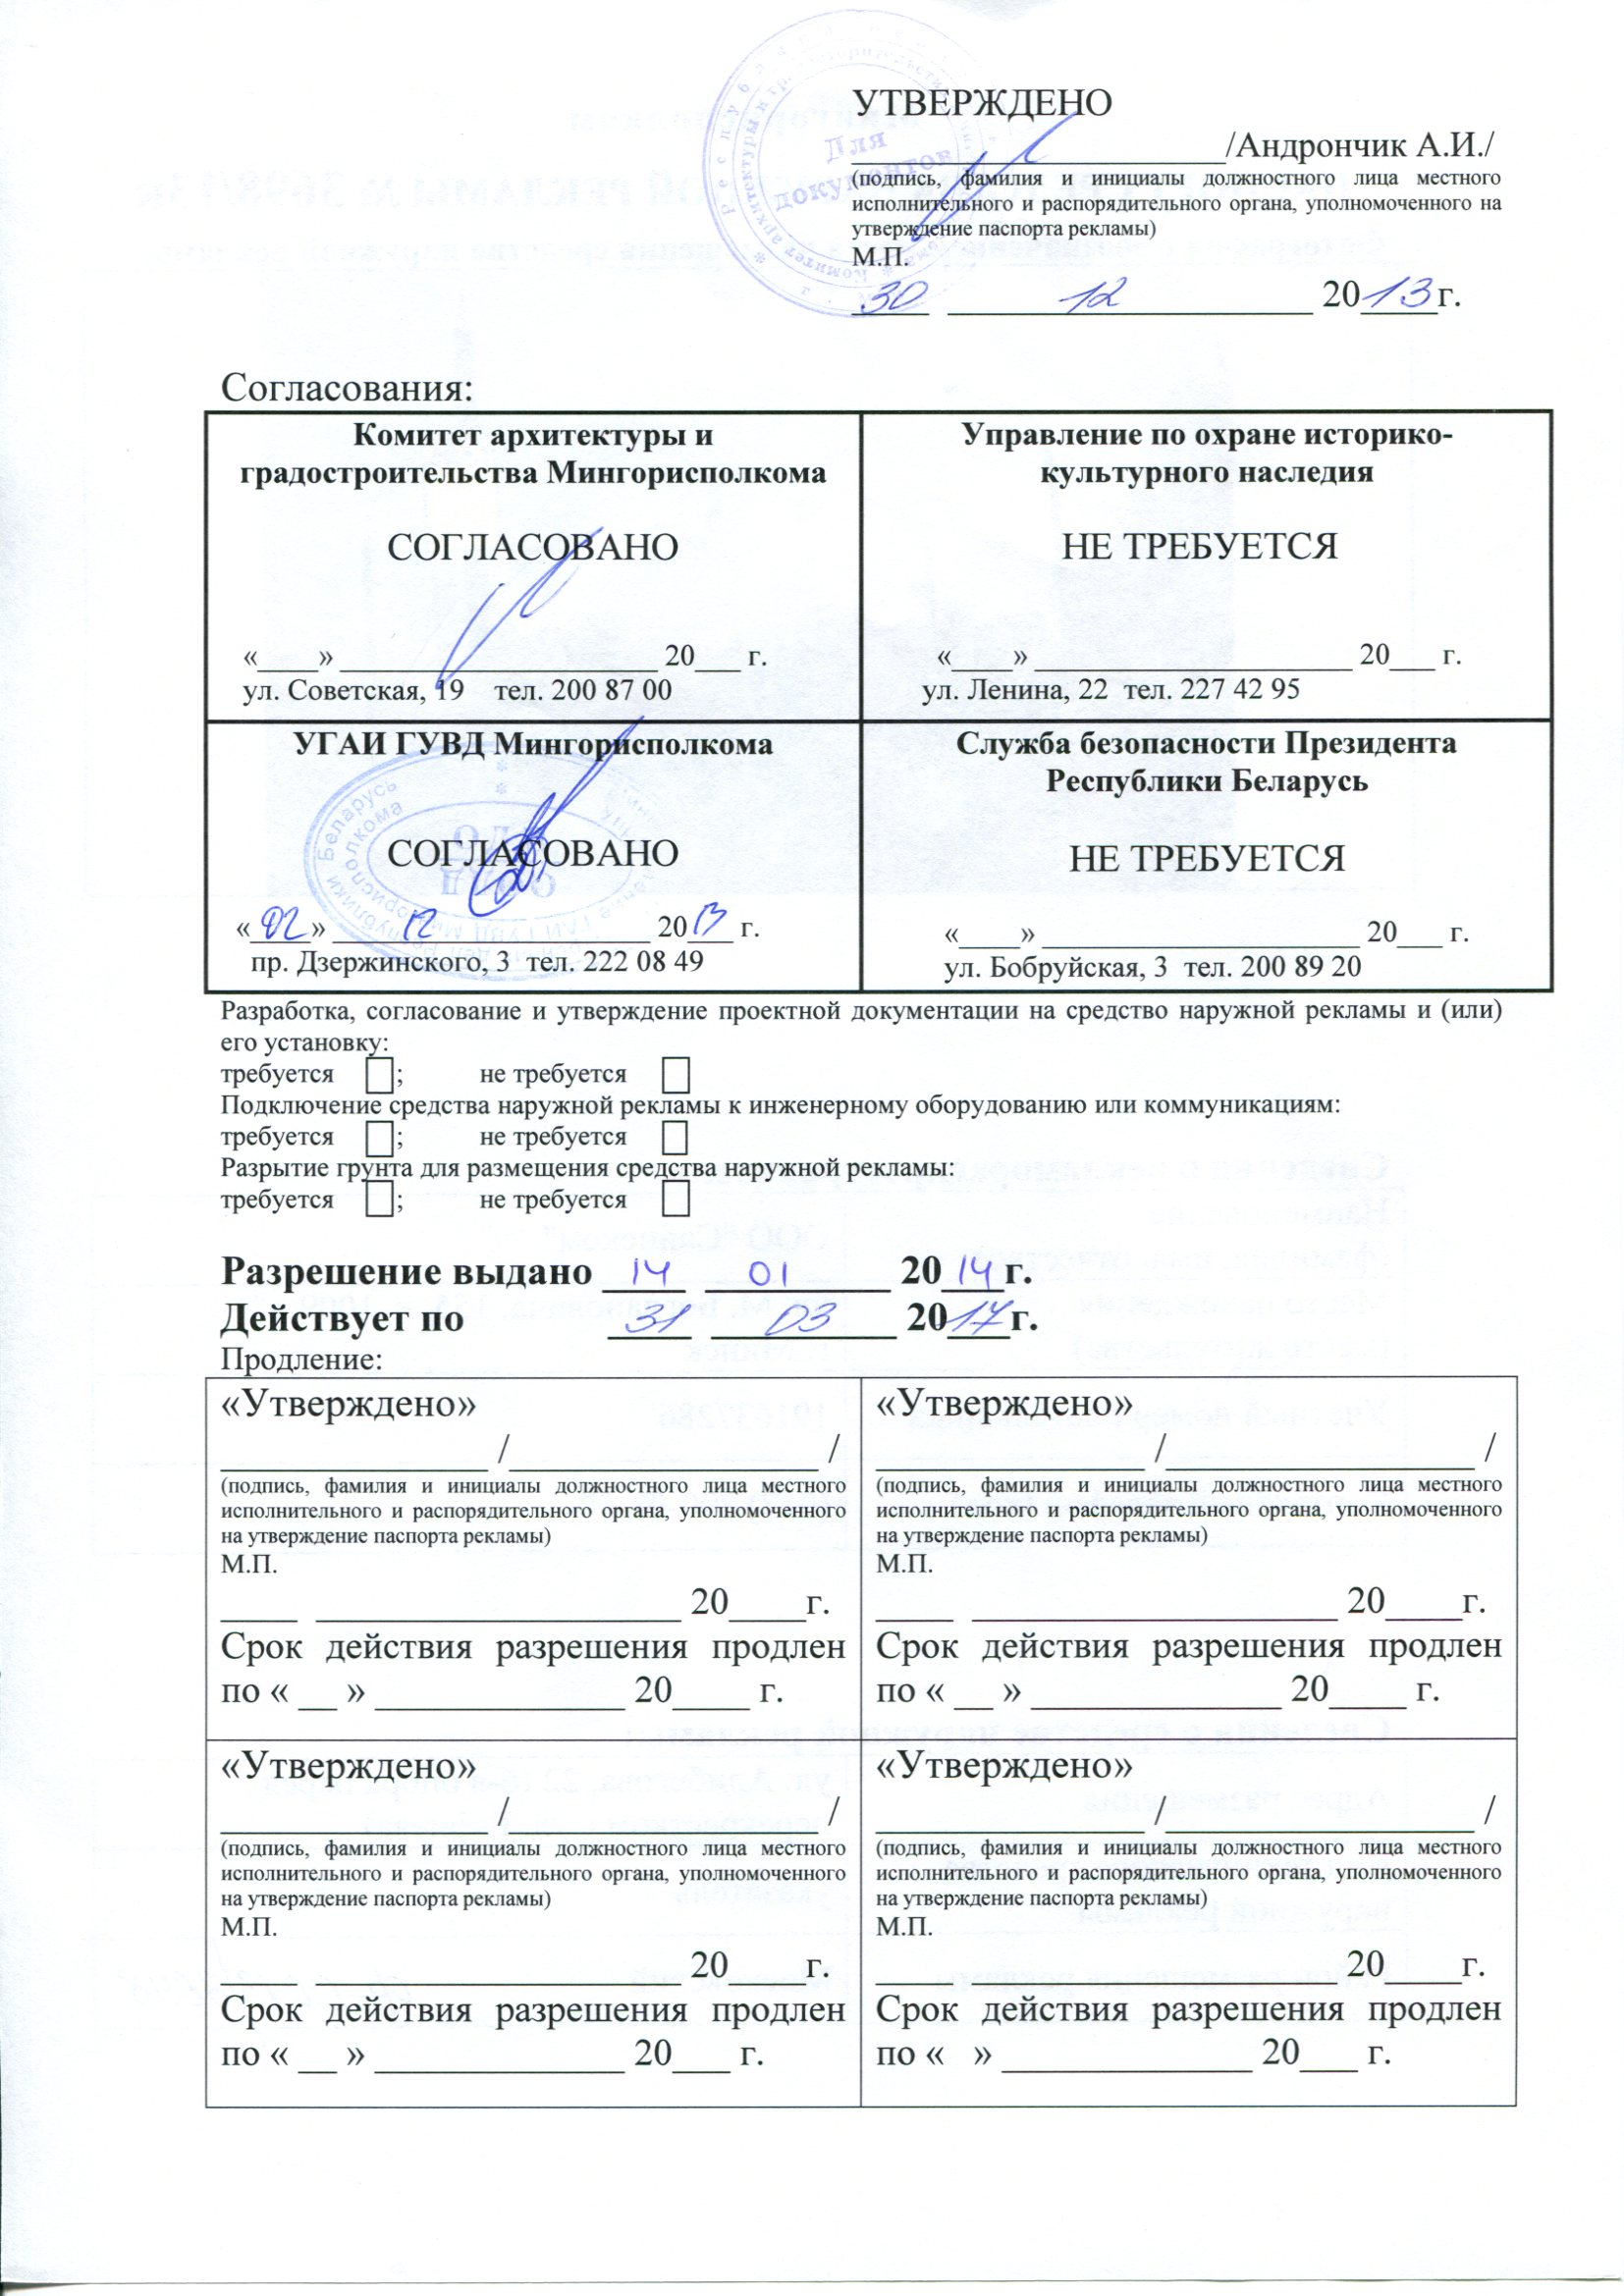 УТВЕРЖДЕНО
____________________/Андрончик А.И./
(подпись, фамилия и инициалы должностного лица местного
исполнительного и распорядительного органа, уполномоченного на
утверждение паспорта рекламы)
М.П.
30 12 2013г.
Для
документов
Согласования:
Комитет архитектуры и
градостроительства Мингорисполкома
СОГЛАСОВАНО
«____» _____________________ 20___ г.
ул. Советская, 19 тел. 200 87 00
Управление по охране историко-
культурного наследия
НЕ ТРЕБУЕТСЯ
«____» _____________________ 20___ г.
ул. Ленина, 22 тел. 227 42 95
УГАИ ГУВД Мингорисполкома
СОГЛАСОВАНО
«02» 12 2013 г.
пр. Дзержинского, 3 тел. 222 08 49
Служба безопасности Президента
Республики Беларусь
НЕ ТРЕБУЕТСЯ
«____» _____________________ 20___ г.
ул. Бобруйская, 3 тел. 200 89 20
Разработка, согласование и утверждение проектной документации на средство наружной рекламы и (или)
его установку:
требуется ; не требуется
Подключение средства наружной рекламы к инженерному оборудованию или коммуникациям:
требуется ; не требуется
Разрытие грунта для размещения средства наружной рекламы:
требуется ; не требуется
Разрешение выдано 14 01 2014г.
Действует по 31 03 2017г.
Продление:
«Утверждено»
______________ /________________ /
(подпись, фамилия и инициалы должностного лица местного
исполнительного и распорядительного органа, уполномоченного
на утверждение паспорта рекламы)
М.П.
____ ___________________ 20____г.
Срок действия разрешения продлен
по « __ » _____________ 20____ г.
«Утверждено»
______________ /________________ /
(подпись, фамилия и инициалы должностного лица местного
исполнительного и распорядительного органа, уполномоченного
на утверждение паспорта рекламы)
М.П.
____ ___________________ 20____г.
Срок действия разрешения продлен
по « __ » _____________ 20____ г.
«Утверждено»
______________ /________________ /
(подпись, фамилия и инициалы должностного лица местного
исполнительного и распорядительного органа, уполномоченного
на утверждение паспорта рекламы)
М.П.
____ ___________________ 20____г.
Срок действия разрешения продлен
по « __ » _____________ 20___ г.
«Утверждено»
______________ /________________ /
(подпись, фамилия и инициалы должностного лица местного
исполнительного и распорядительного органа, уполномоченного
на утверждение паспорта рекламы)
М.П.
____ ___________________ 20____г.
Срок действия разрешения продлен
по « » _____________ 20___ г.